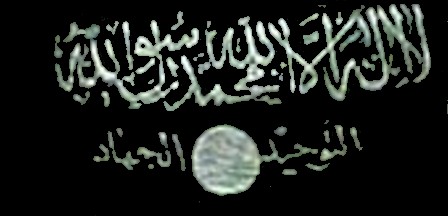 لا إله إلا الله محمد رسول الله
التوحيد الجهاد